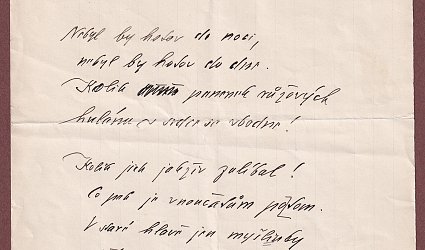 Nebyl by hotov do noci,
nebyl by hotov do dne.
Kolik panenek růžových
hulánu v srdce se vbodne!
Kolik jich jakživ zulíbal!
Co pak je vnoučatům
V staré hlavě jen myšlenky